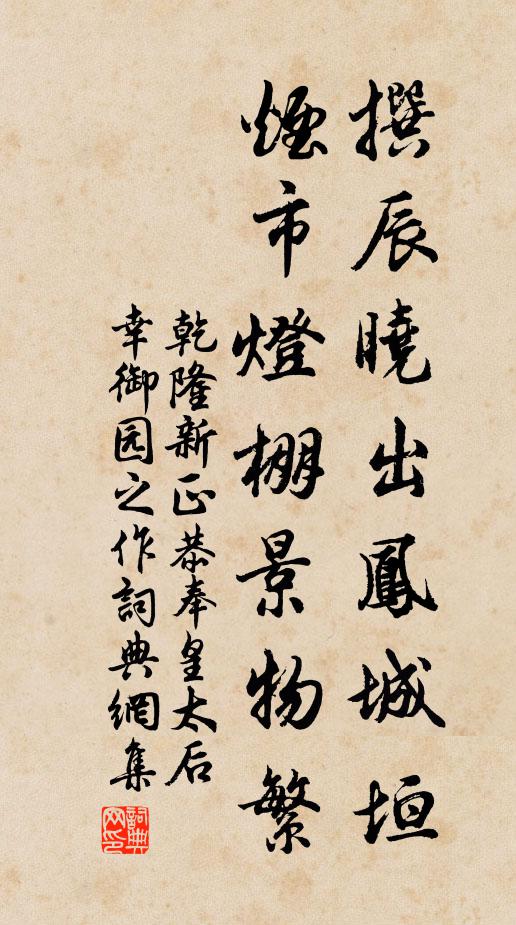 撰辰曉出鳳城垣
煙市燈棚景物繁
乾隆新正恭奉皇太后
幸御园之作詞典網集
詞典网印